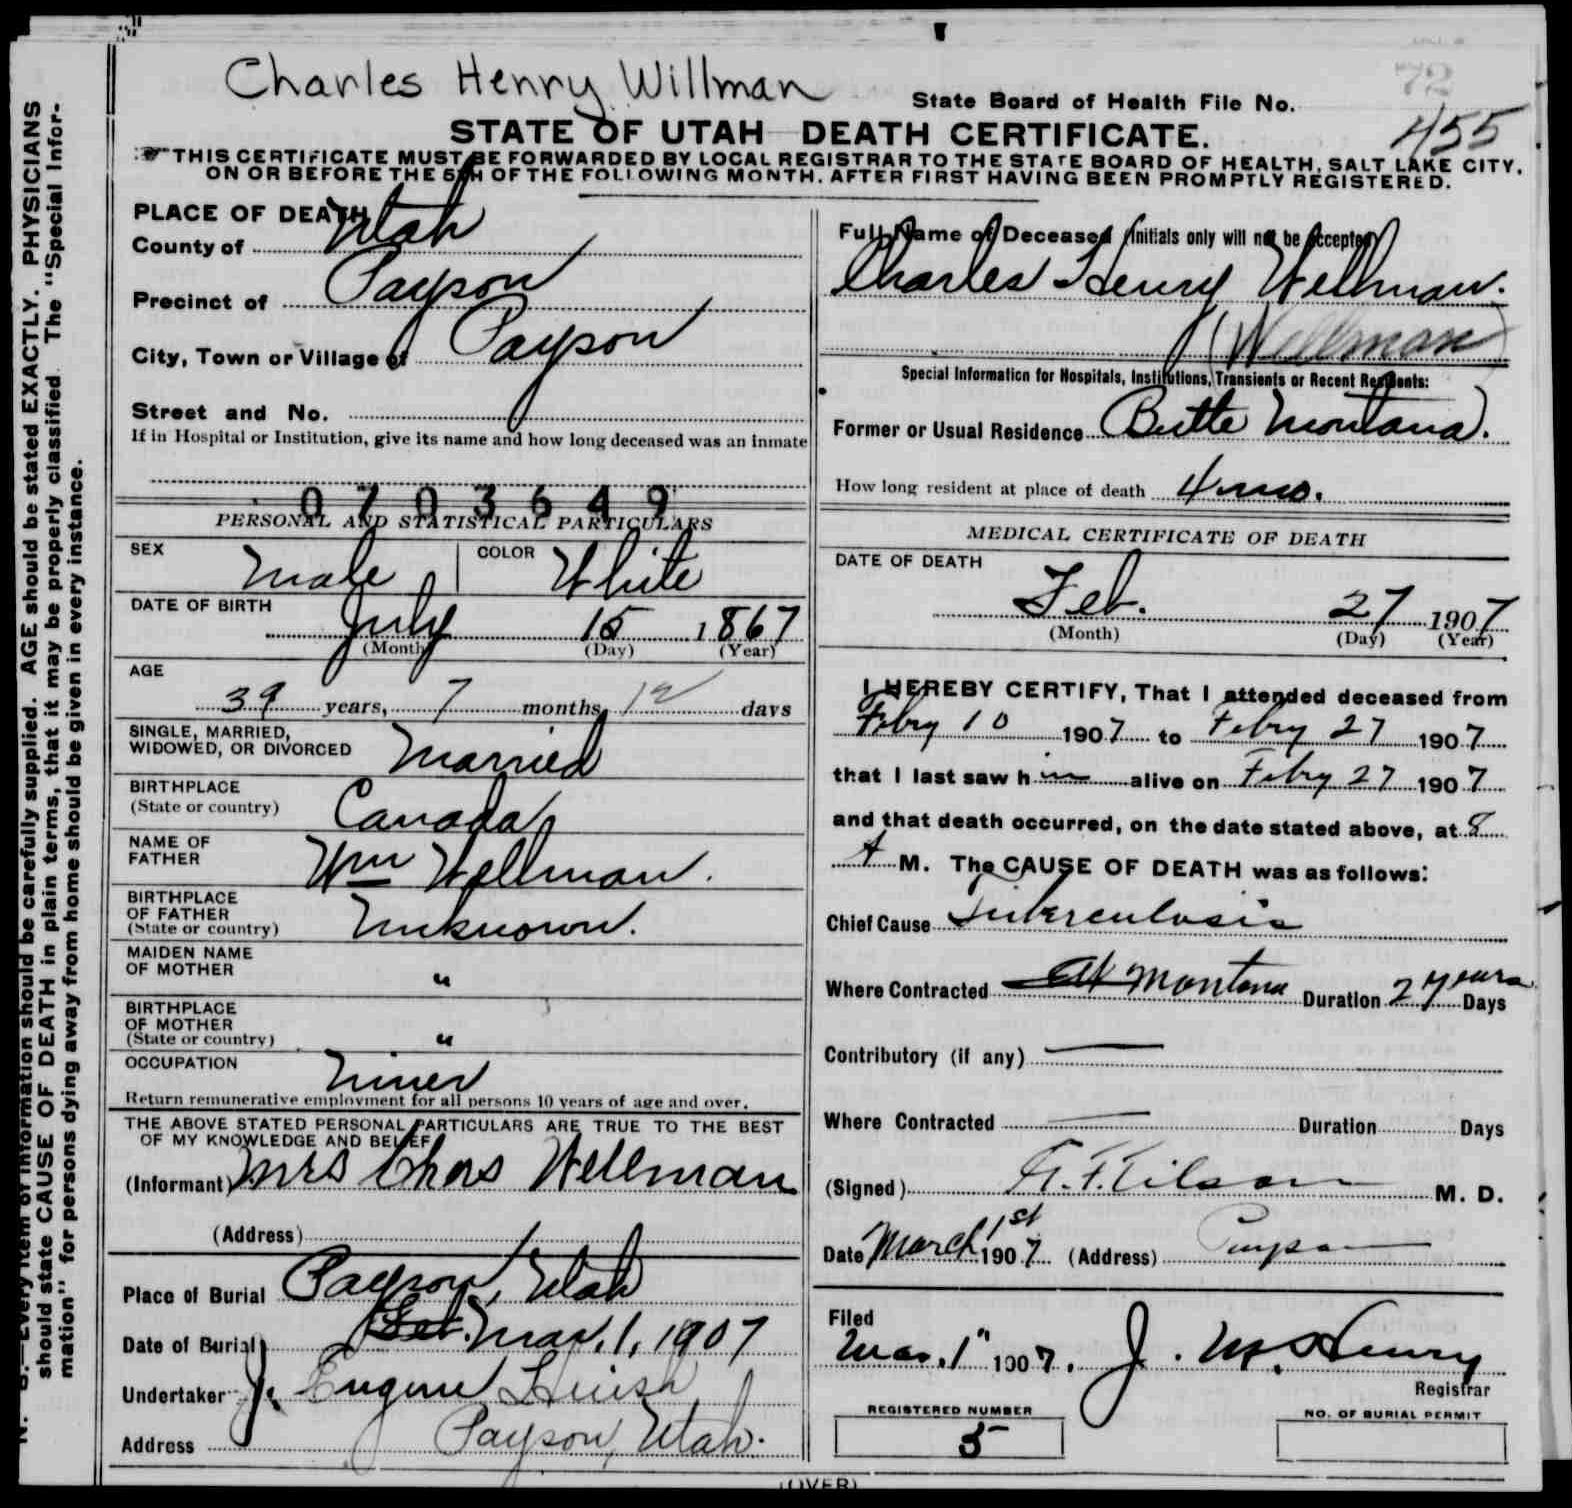 Charles Henry Willman
State Board of Health File No.
72
455
STATE OF UTAH DEATH CERTIFICATE.
THIS CERTIFICATE MUST BE FORWARDED BY LOCAL REGISTRAR TO THE STATE BOARD OF HEALTH, SALT LAKE CITY,
ON OR BEFORE THE 5TH OF THE FOLLOWING MONTH, AFTER FIRST HAVING BEEN PROMPTLY REGISTERED.
N. B.—Every item of information should be carefully supplied. AGE should be stated EXACTLY. PHYSICIANS
should state CAUSE OF DEATH in plain terms, that it may be properly classified. The "Special Infor-
mation" for persons dying away from home should be given in every instance.
PLACE OF DEATH
County of Utah
Precinct of Payson
City, Town or Village of Payson
Street and No.
If in Hospital or Institution, give its name and how long deceased was an inmate
0703649
PERSONAL AND STATISTICAL PARTICULARS
SEX Male COLOR White
DATE OF BIRTH
July 15 1867
(Month) (Day) (Year)
AGE
39 years, 7 months, 12 days
SINGLE, MARRIED,
WIDOWED, OR DIVORCED Married
BIRTHPLACE
(State or country) Canada
NAME OF
FATHER Wm Wellman.
BIRTHPLACE
OF FATHER
(State or country) Unknown.
MAIDEN NAME
OF MOTHER "
BIRTHPLACE
OF MOTHER
(State or country) "
OCCUPATION Miner
Return remunerative employment for all persons 10 years of age and over.
THE ABOVE STATED PERSONAL PARTICULARS ARE TRUE TO THE BEST
OF MY KNOWLEDGE AND BELIEF
(Informant) Mrs Chas Wellman
(Address)
Place of Burial Payson, Utah
Date of Burial Feb. Mar. 1, 1907
Undertaker J. Eugene Huish
Address Payson, Utah.
Full Name of Deceased (Initials only will not be accepted)
Charles Henry Wellman.
(Willman)
Special Information for Hospitals, Institutions, Transients or Recent Residents:
Former or Usual Residence Butte Montana.
How long resident at place of death 4 mo.
MEDICAL CERTIFICATE OF DEATH
DATE OF DEATH
Feb. 27 1907
(Month) (Day) (Year)
I HEREBY CERTIFY, That I attended deceased from
Febry 10 1907 to Febry 27 1907
that I last saw h im alive on Febry 27 1907
and that death occurred, on the date stated above, at 8
A M. The CAUSE OF DEATH was as follows:
Chief Cause Tuberculosis
Where Contracted At Montana Duration 2 years Days
Contributory (if any) —
Where Contracted — Duration Days
(Signed) A. F. Tilson M. D.
Date March 1st 1907 (Address) Payson
Filed
Mar. 1" 1907. J. McHenry
Registrar
REGISTERED NUMBER
5
NO. OF BURIAL PERMIT
(OVER)